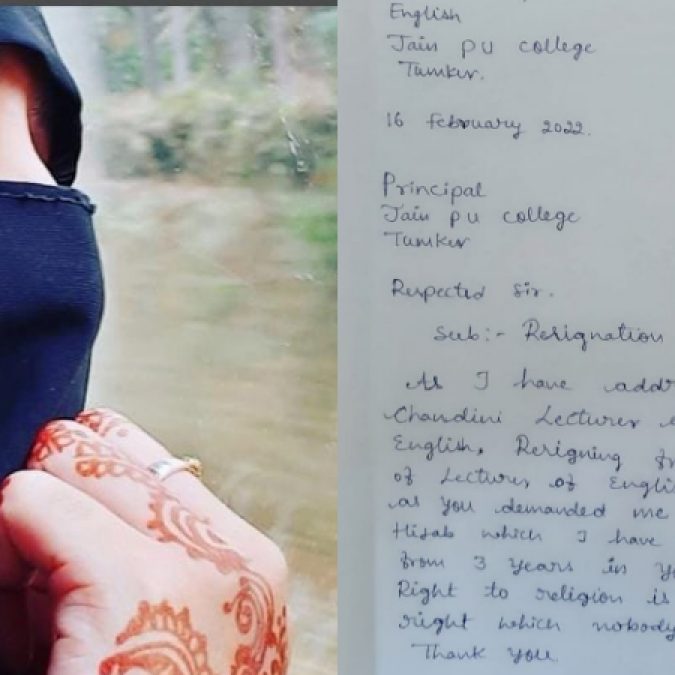 English
Jain pu college
Tumkur.
16 february 2022.
Principal
Jain pu college
Tumkur
Respected Sir.
Sub:- Resignation
As I have addr
Chandini Lecturer
English, Resigning fr
of Lecturer of Engli
as you demanded me
Hijab which I have
from 3 years in y
Right to religion is
right which nobody
Thank you.